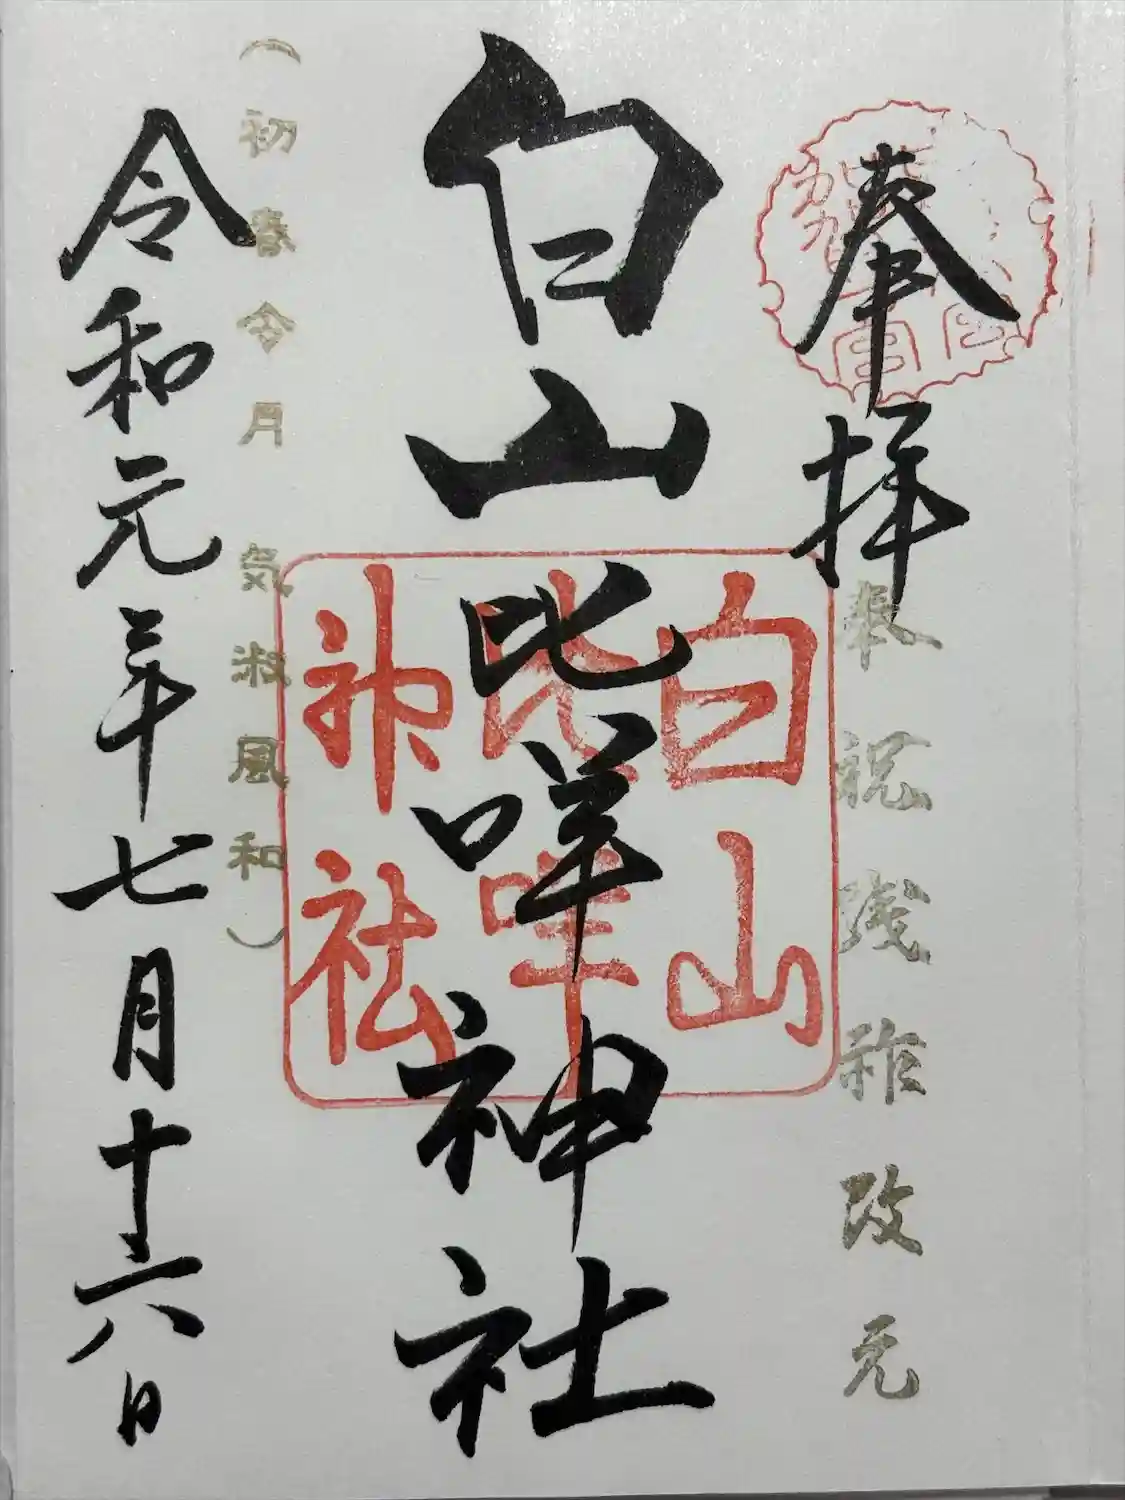 奉拝
奉祝践祚改元
白山比咩神社
白山
比咩
神社
(初春令月 気淑風和)
令和元年七月十六日